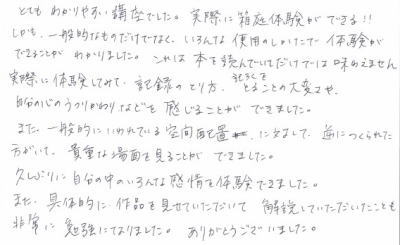 とても わかりやすい 講座でした。実際に箱庭体験ができる!!
しかも、一般的なものだけでなく、いろんな使用のしかたで体験が
できることが わかりました。これは本を読んでいるだけでは味わえません
実際に体験してみて、記録のとり方、記録をとることの大変さや、
自分の心のうつりかわりなどを感じることが できました。
また、一般的にいわれている空間配置に対して、逆につくられた
方がいて、貴重な場面を見ることが できました。
久しぶりに自分の中のいろんな感情を体験できました。
また、具体的に作品を見せていただいて 解説していただいたことも
非常に勉強になりました。ありがとうございました。